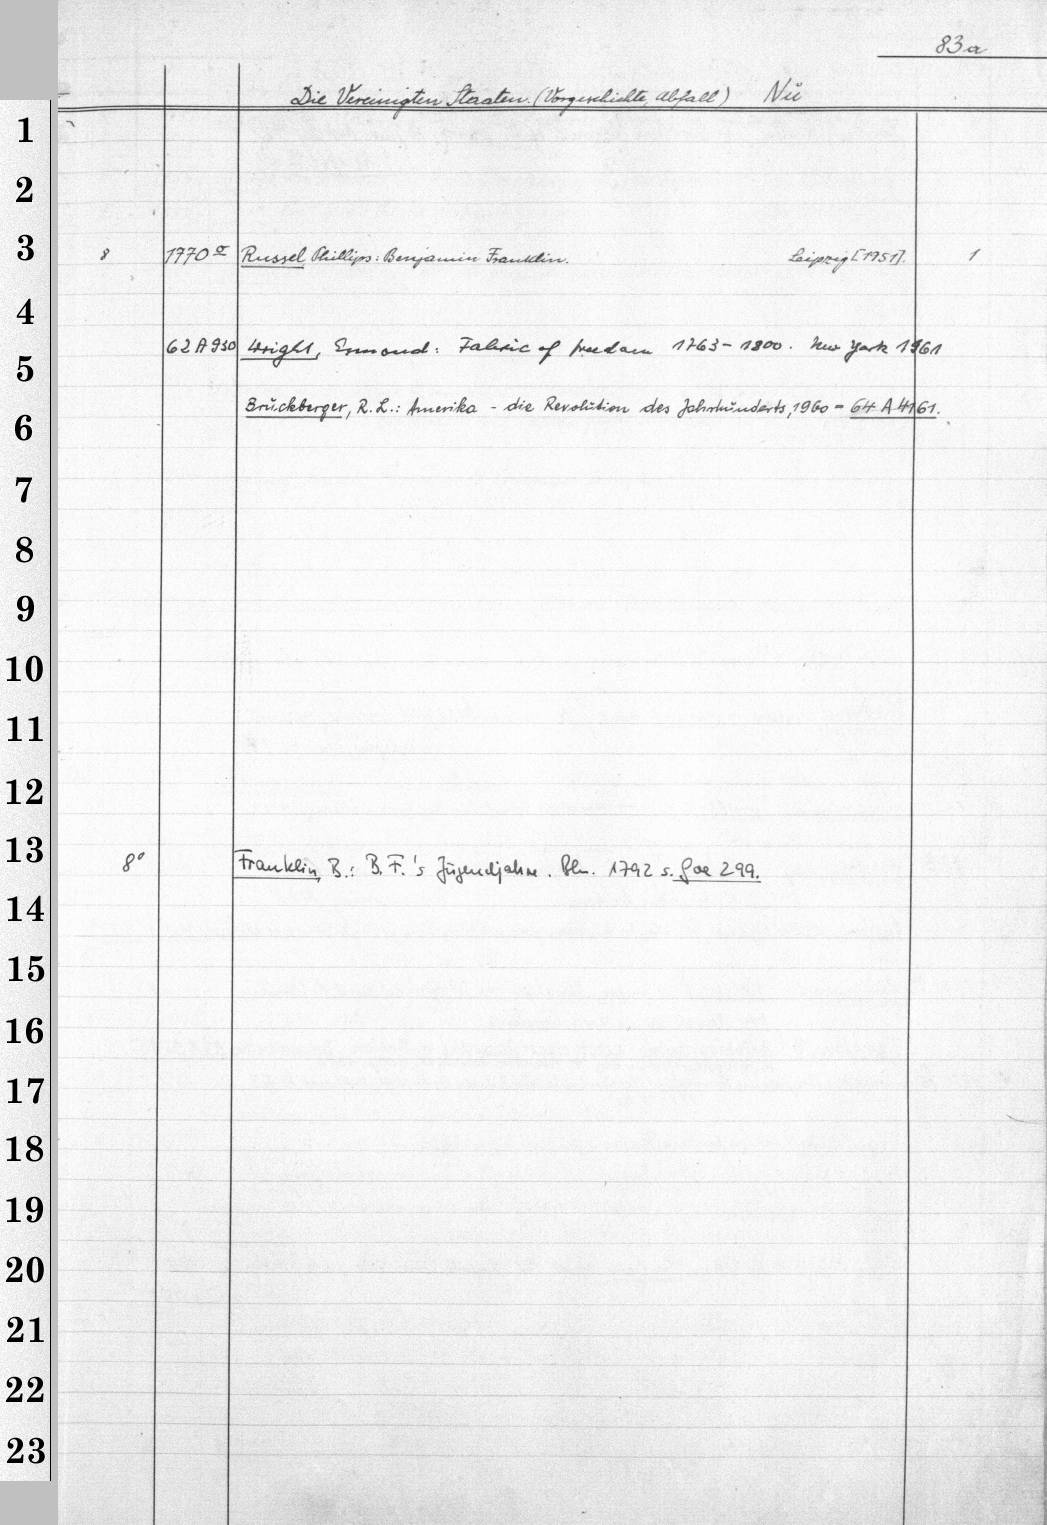 83a
Die Vereinigten Staaten. (Vorgeschichte, Abfall) Nü
1
2
3 8 1770 a Russel Phillips: Benjamin Franklin. Leipzig [1951]. 1
4
5 62 A 930 Wright, Esmond: Fabric of freedom 1763-1800. New York 1961
6 Brückberger, R. L.: Amerika - die Revolution des Jahrhunderts, 1960 = 64 A 4161.
7
8
9
10
11
12
13 8° Franklin, B.: B. F.'s Jugendjahre. Bln. 1792 s. Goe 299.
14
15
16
17
18
19
20
21
22
23